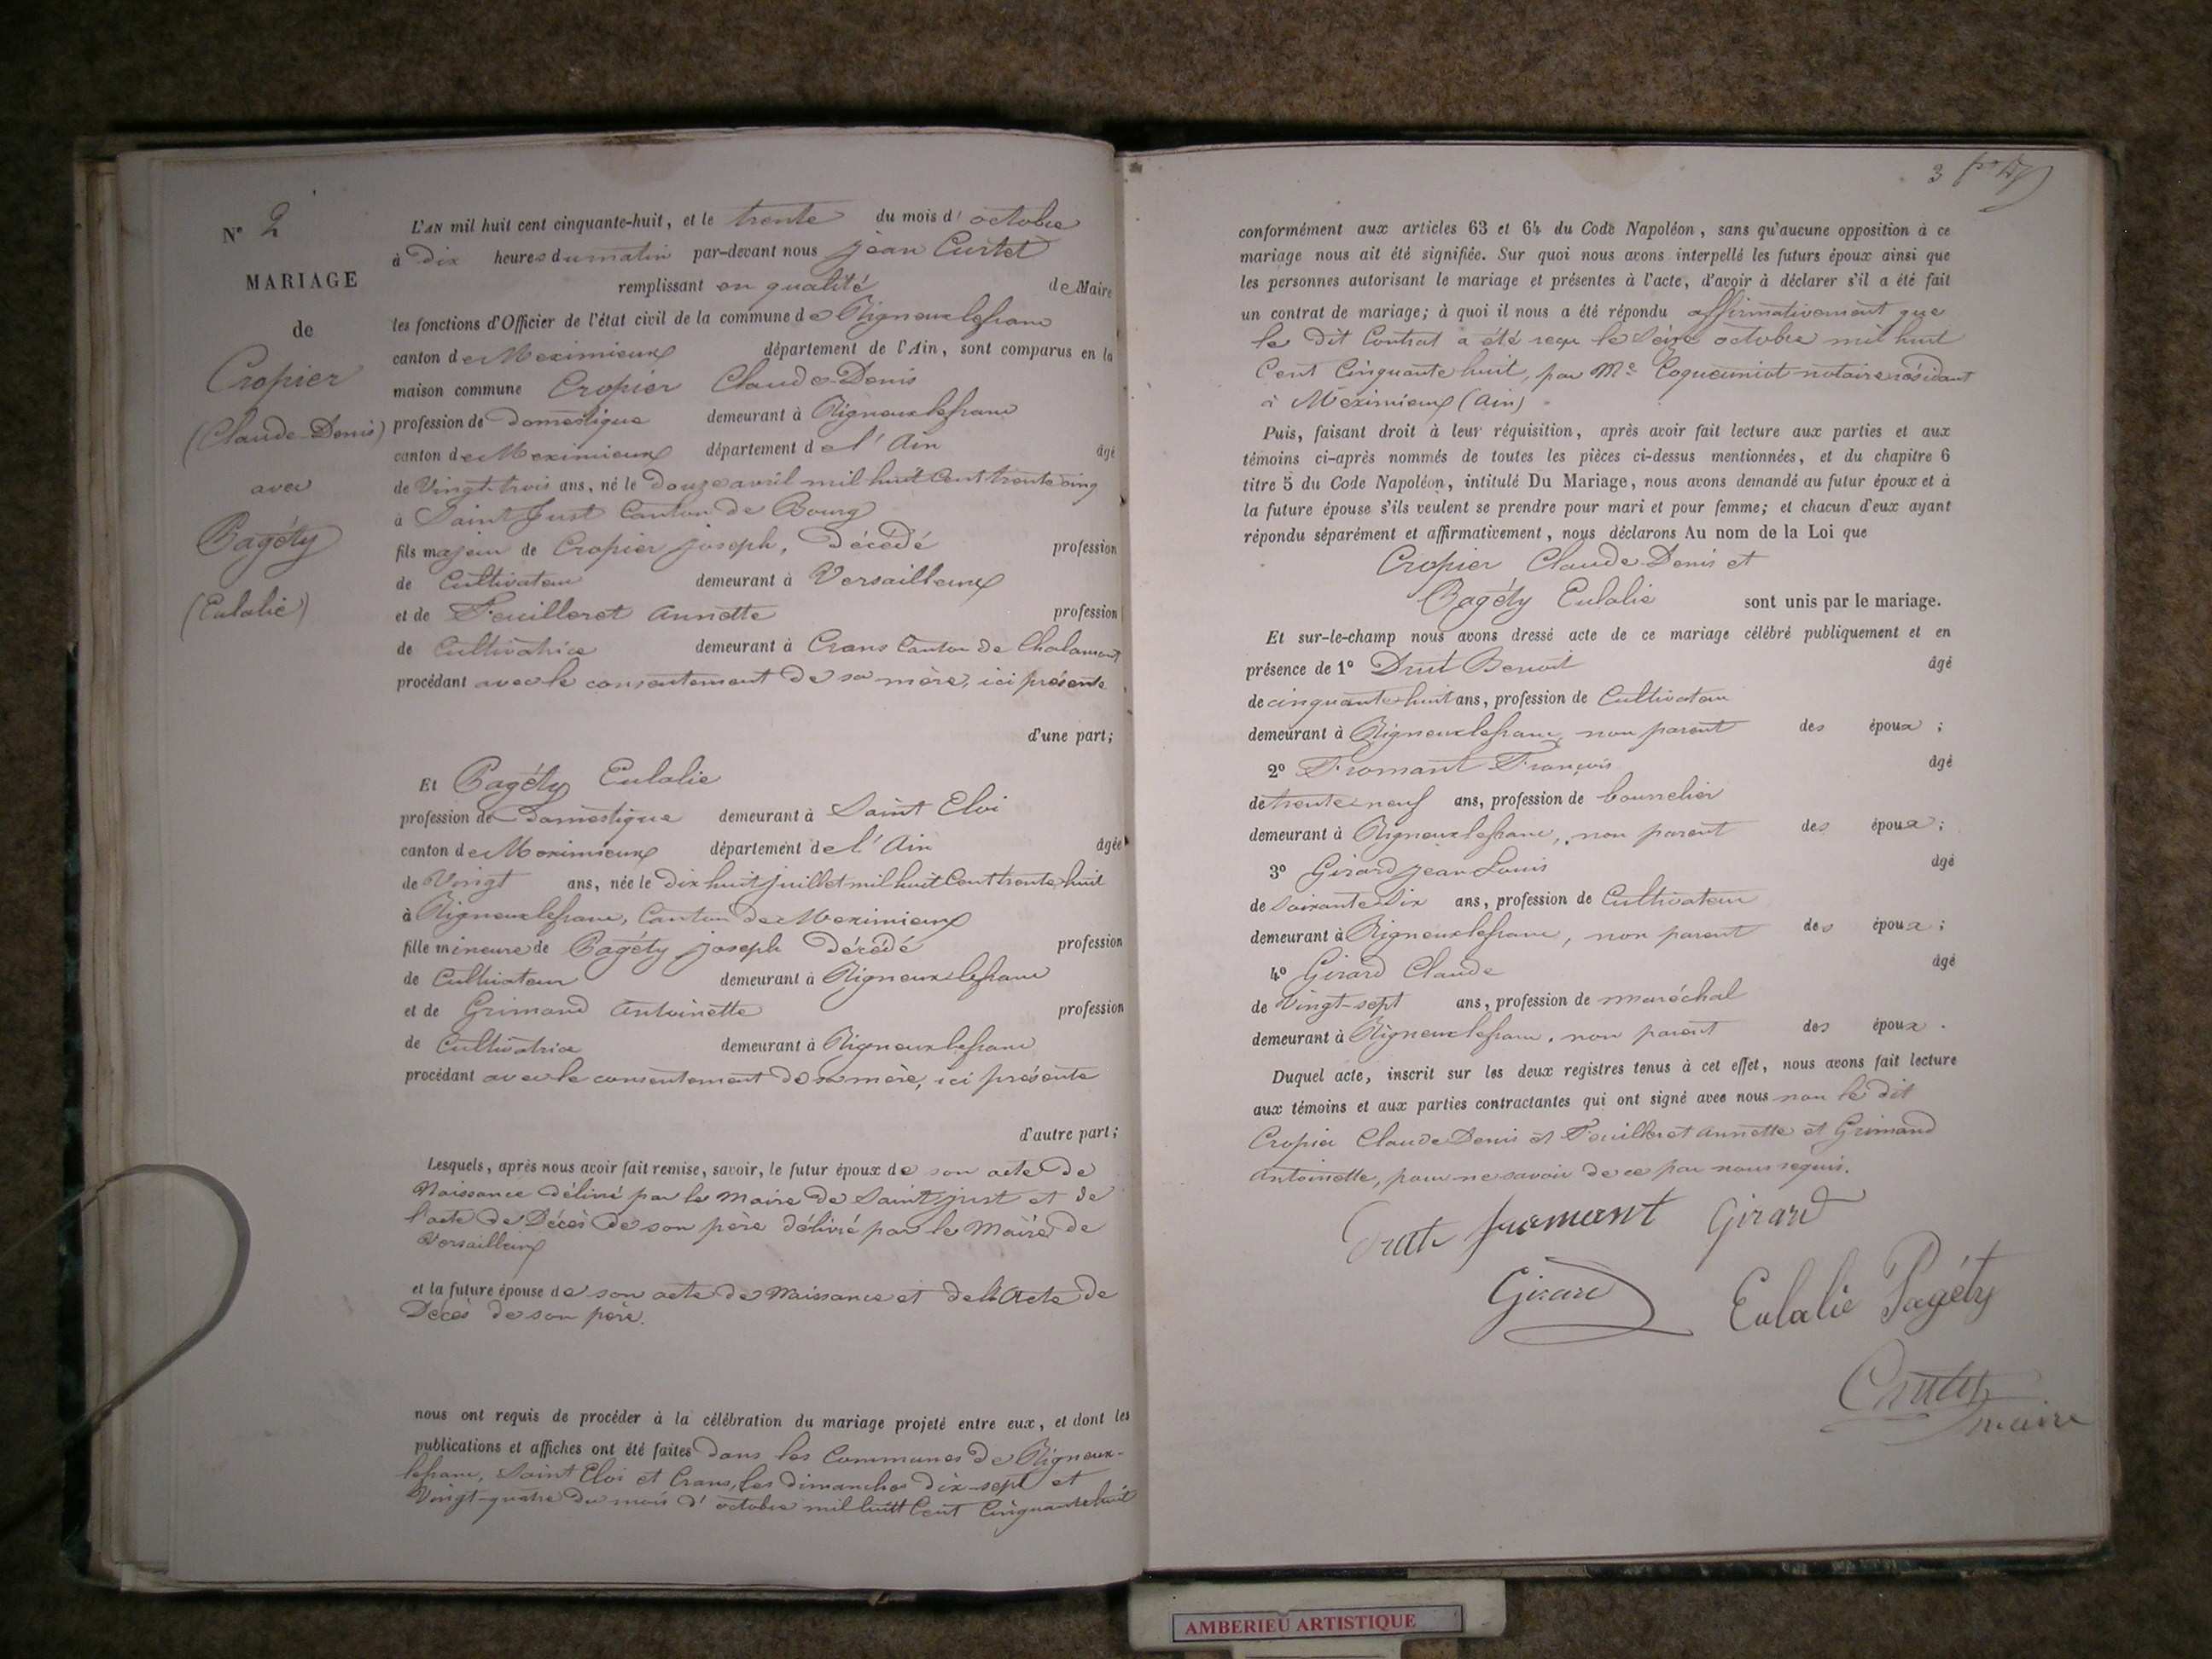 N° 2
MARIAGE
de
Cropier
(Claude-Denis)
avec
Pagéty
(Eulalie)
L'AN mil huit cent cinquante-huit, et le trente du mois d'octobre
à Dix heures du matin par-devant nous jean Curtet
remplissant en qualité de Maire
les fonctions d'Officier de l'état civil de la commune de Rigneux lefranc
canton de Meximieux département de l'Ain, sont comparus en la
maison commune Cropier Claude-Denis
profession de Domestique demeurant à Rigneux lefranc
canton de Meximieux département de l'Ain âgé
de Vingt-trois ans, né le Douze avril mil huit Cent trente cinq
à Saint Just Canton de Bourg
fils majeur de Cropier joseph, Décédé profession
de Cultivateur demeurant à Versailleux
et de Feuilleret Annette profession
de Cultivatrice demeurant à Crans Canton de Chalamont
procédant avec le consentement de sa mère, ici présente
d'une part;
Et Pagéty Eulalie
profession de Domestique demeurant à Saint Eloi
canton de Meximieux département de l'Ain âgée
de Vingt ans, née le Dix huit juillet mil huit Cent trente huit
à Rigneux lefranc, Canton de Meximieux
fille mineure de Pagéty joseph Décédé profession
de Cultivateur demeurant à Rigneux lefranc
et de Grimand Antoinette profession
de Cultivatrice demeurant à Rigneux lefranc
procédant avec le consentement de sa mère, ici présente
d'autre part;
Lesquels, après nous avoir fait remise, savoir, le futur époux de son acte de
Naissance délivré par le Maire de Saint just et de
l'acte de Décès de son père délivré par le Maire de
Versailleux
et la future épouse de son acte de Naissance et de l'Acte de
Décès de son père.
nous ont requis de procéder à la célébration du mariage projeté entre eux, et dont les
publications et affiches ont été faites Dans les Communes de Rigneux-
lefranc, Saint Eloi et Crans, les dimanches Dix-sept et
Vingt-quatre du mois d'octobre mil huit Cent Cinquante huit
3
conformément aux articles 63 et 64 du Code Napoléon, sans qu'aucune opposition à ce
mariage nous ait été signifiée. Sur quoi nous avons interpellé les futurs époux ainsi que
les personnes autorisant le mariage et présentes à l'acte, d'avoir à déclarer s'il a été fait
un contrat de mariage; à quoi il nous a été répondu affirmativement que
le dit Contrat a été reçu le Seize octobre mil huit
Cent Cinquante huit, par Me Coqueuniot notaire résidant
à Meximieux (Ain)
Puis, faisant droit à leur réquisition, après avoir fait lecture aux parties et aux
témoins ci-après nommés de toutes les pièces ci-dessus mentionnées, et du chapitre 6
titre 5 du Code Napoléon, intitulé Du Mariage, nous avons demandé au futur époux et à
la future épouse s'ils veulent se prendre pour mari et pour femme; et chacun d'eux ayant
répondu séparément et affirmativement, nous déclarons Au nom de la Loi que
Cropier Claude Denis et
Pagéty Eulalie sont unis par le mariage.
Et sur-le-champ nous avons dressé acte de ce mariage célébré publiquement et en
présence de 1° Benoit âgé
de cinquante-huit ans, profession de Cultivateur
demeurant à Rigneux lefranc, non parent des époux;
2° Fromant François âgé
de trente-neuf ans, profession de bourrelier
demeurant à Rigneux lefranc, non parent des époux;
3° Girard jean Louis âgé
de Soixante Six ans, profession de Cultivateur
demeurant à Rigneux lefranc, non parent des époux;
4° Girard Claude âgé
de Vingt-sept ans, profession de maréchal
demeurant à Rigneux lefranc, non parent des époux.
Duquel acte, inscrit sur les deux registres tenus à cet effet, nous avons fait lecture
aux témoins et aux parties contractantes qui ont signé avec nous non le dit
Cropier Claude Denis et Feuilleret Annette et Grimand
Antoinette, pour ne savoir de ce par nous requis.
fromant Girard
Girard Eulalie Pagéty
Curtet
maire
AMBERIEU ARTISTIQUE